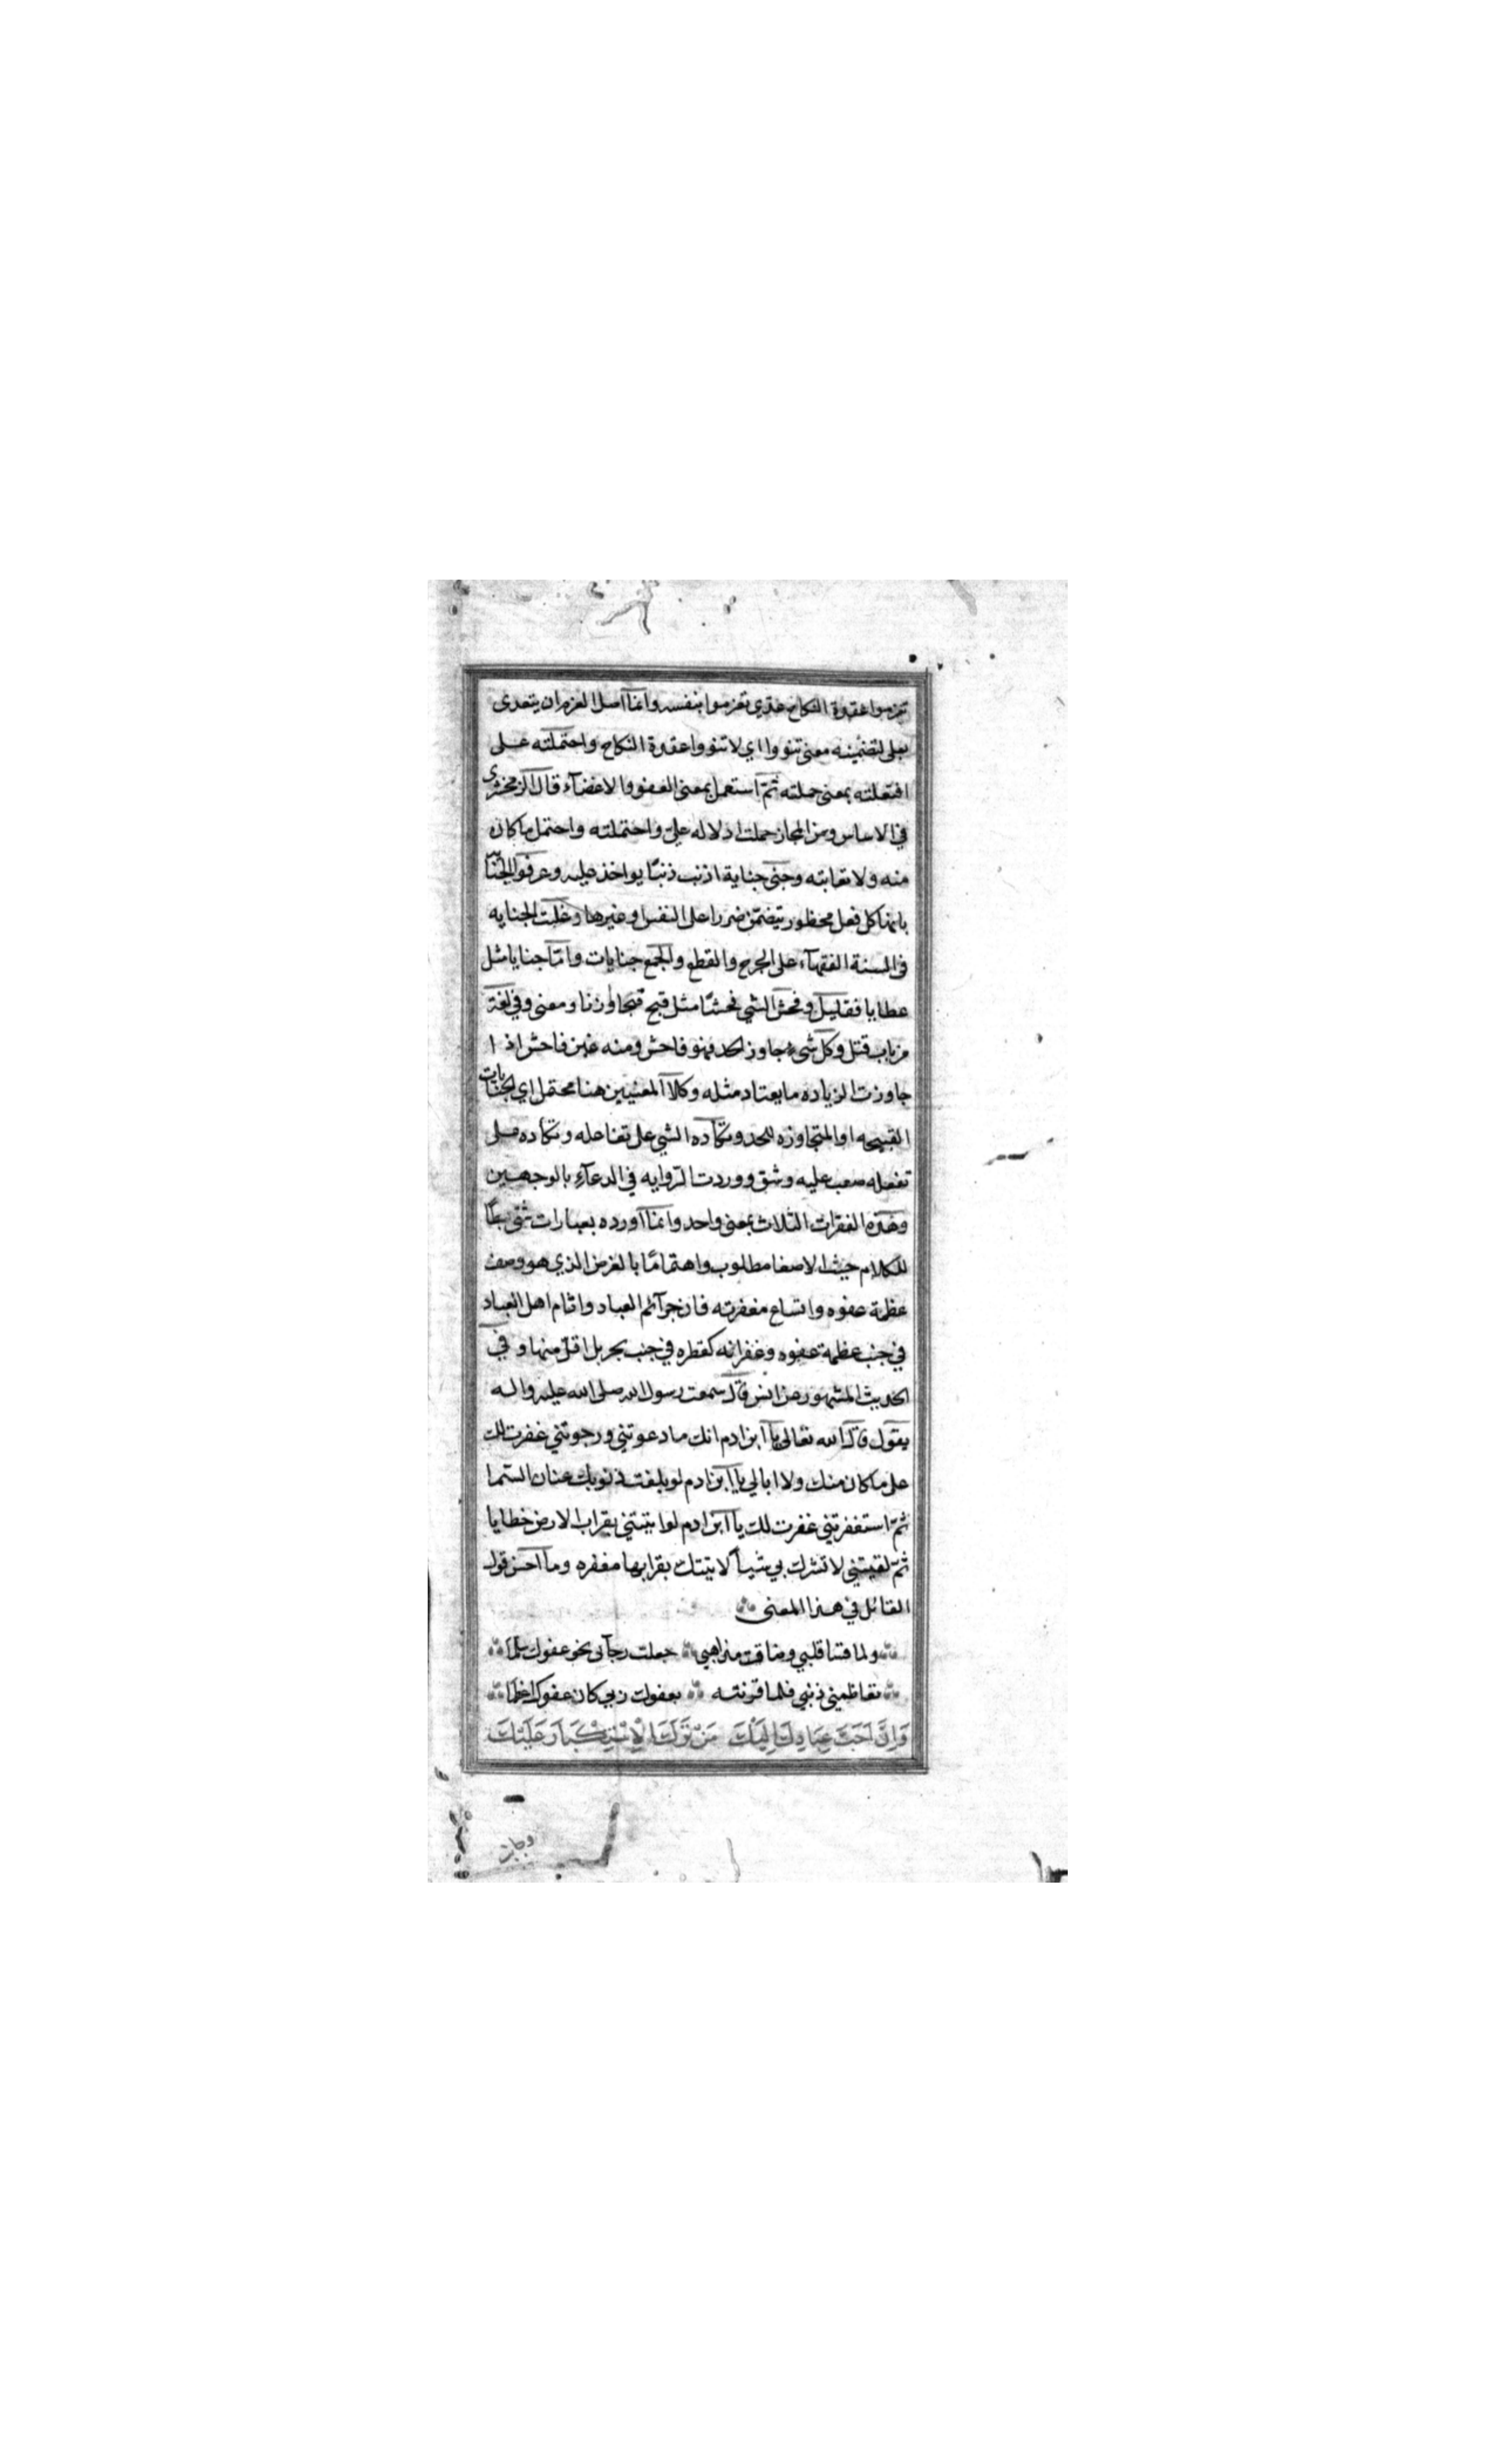 تعزموا عقدة النكاح عدي تعزموا بنفسه وانما اصل العزم ان يتعدى
بعلى لتضمينه معنى تنووا اي لا تنووا عقدة النكاح واحتملته على
افتعلته بمعنى حملته ثمّ استعمل بمعنى العفو والاغضآء قال الزمخشري
في الاساس ومن المجاز حملت ادلاله عليّ واحتملته واحتمل ما كان
منه ولا تعاتبه وجنى جناية اذنب ذنبًا يواخذ عليه وعرفوا الجناية
بانها كل فعل محظور يتضمّن ضررا على النفس او غيرها وغلبت الجنايه
في السنة الفقهآء على الجرح والقطع والجمع جنايات وامّا جنايا مثل
عطايا فقليل وفحش الشي فحشًا مثل قبح قبحا وزنا ومعنى وفي لغة
من باب قتل وكل شيء جاوز الحد فهو فاحش ومنه غبن فاحش اذا
جاوزت الزياده ما يعتاد مثله وكلا المعنيين هنا محتمل اي الجنايات
القبيحه او المتجاوزه للحد وتكآده الشي على تفاعله وتكأده على
تفعله صعب عليه وشق ووردت الروايه في الدعآء بالوجهين
وهذه الفقرات الثلاث بمعنى واحد وانمآ آورده بعبارات شتى بسطًا
للكلام حيث الاصغا مطلوب واهتمامًا بالغرض الذي هو وصف
عظمة عفوه واتساع مغفرته فان جرآئم العباد واثام اهل العباد
في جنب عظمة عفوه وغفرانه كقطره في جنب بحر بل اقل منها وفي
الحديث المشهور عن انس قال سمعت رسول الله صلى الله عليه واله
يقول قال الله تعالى يا ابن ادم انك ما دعوتني ورجوتني غفرت لك
على ما كان منك ولا ابالي يا ابن ادم لو بلغت ذنوبك عنان السمآ
ثمّ استغفرتني غفرت لك يا ابن ادم لو اتيتني بقراب الارض خطايا
ثمّ لقيتني لا تشرك بي شيأ لاتيتك بقرابها مغفره وما احسن قول
القائل في هذا المعنى
ولما قسا قلبي وضاقت مذاهبي جعلت رجآئى نحو عفوك سلما
تعاظمني ذنبي فلما قرنته بعفوك ربي كان عفوك اعظما
وَاِنَّ اَحَبَّ عِبَادِكَ اِلَيْكَ مَنْ تَرَكَ الْاِسْتِكْبَارَ عَلَيْكَ
وجانب